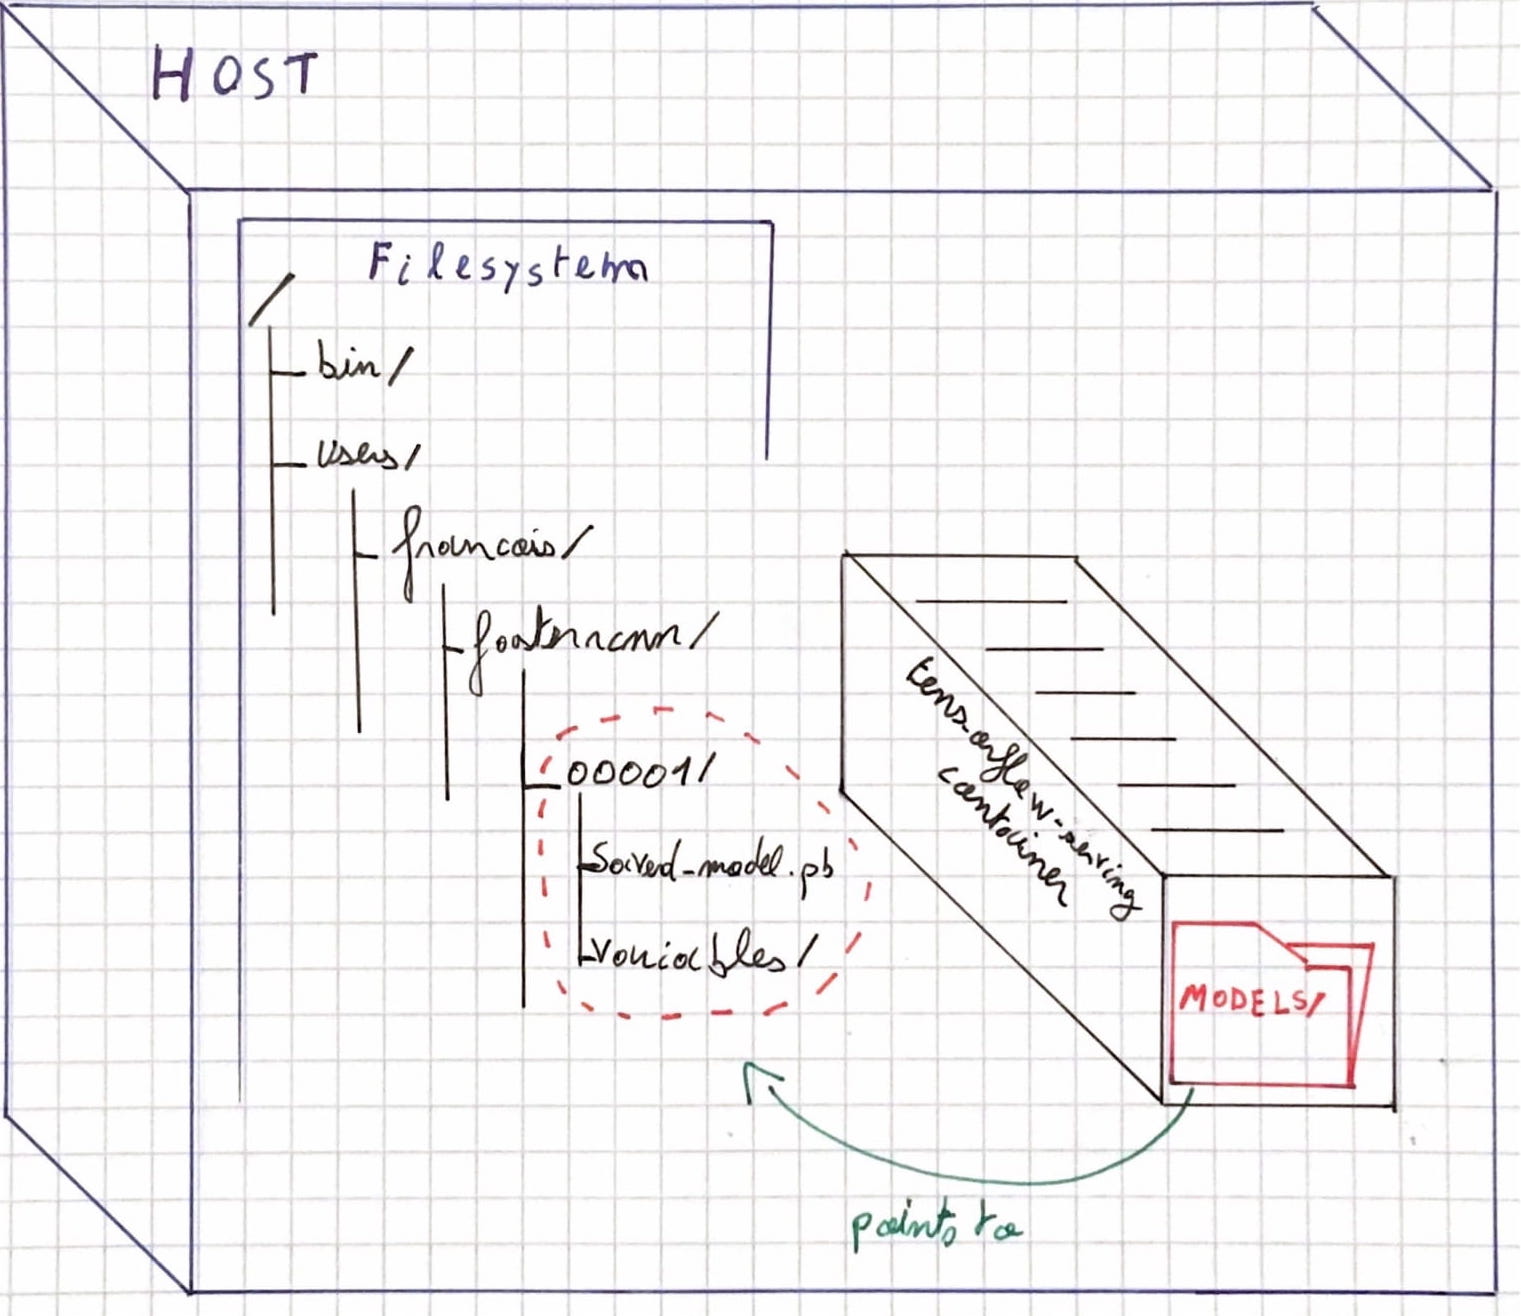 HOST
Filesystem
/
bin/
Users/
francois/
fasterrcnn/
00001/
Saved_model.pb
variables/
tensorflow-serving
container
MODELS/
points to